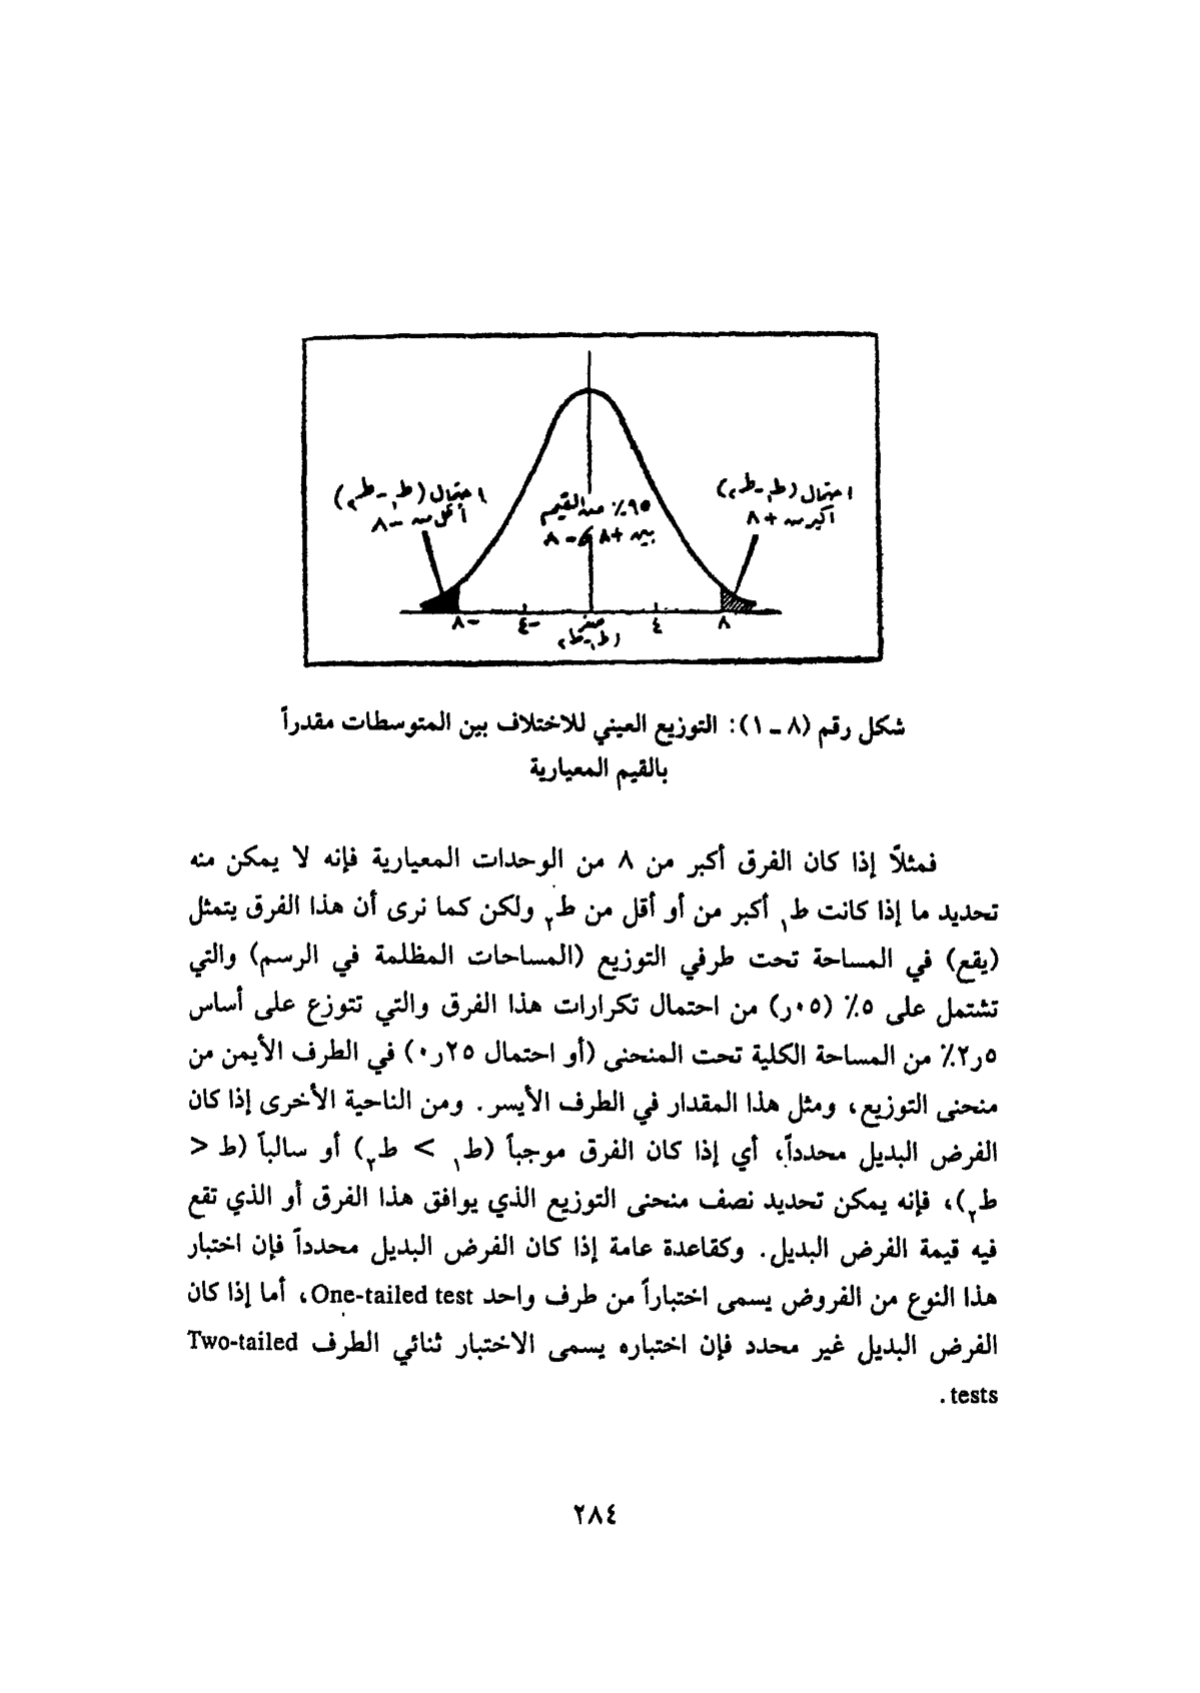 احتمال (ط١ - ط٢)
أكبر من + ٨
٩٥٪ من القيم
بين + ٨ و - ٨
احتمال (ط١ - ط٢)
أقل من - ٨
-٨ -٤ صفر ٤ ٨
(ط١ - ط٢)
شكل رقم (٨ - ١): التوزيع العيني للاختلاف بين المتوسطات مقدراً
بالقيم المعيارية
فمثلاً إذا كان الفرق أكبر من ٨ من الوحدات المعيارية فإنه لا يمكن منه
تحديد ما إذا كانت ط١ أكبر من أو أقل من ط٢ ولكن كما نرى أن هذا الفرق يتمثل
(يقع) في المساحة تحت طرفي التوزيع (المساحات المظلمة في الرسم) والتي
تشتمل على ٥٪ (٠٥ر) من احتمال تكرارات هذا الفرق والتي تتوزع على أساس
٥ر٢٪ من المساحة الكلية تحت المنحنى (أو احتمال ٢٥ر٠) في الطرف الأيمن من
منحنى التوزيع، ومثل هذا المقدار في الطرف الأيسر. ومن الناحية الأخرى إذا كان
الفرض البديل محدداً، أي إذا كان الفرق موجباً (ط١ > ط٢) أو سالباً (ط <
ط٢)، فإنه يمكن تحديد نصف منحنى التوزيع الذي يوافق هذا الفرق أو الذي تقع
فيه قيمة الفرض البديل. وكقاعدة عامة إذا كان الفرض البديل محدداً فإن اختبار
هذا النوع من الفروض يسمى اختباراً من طرف واحد One-tailed test، أما إذا كان
الفرض البديل غير محدد فإن اختباره يسمى الاختبار ثنائي الطرف Two-tailed
tests.
٢٨٤